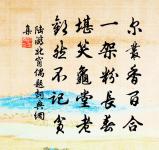 尔叢香百合
一架粉長春
堪笑龜堂老
歡然不记貧
陸游北窗偶題詞典網
集